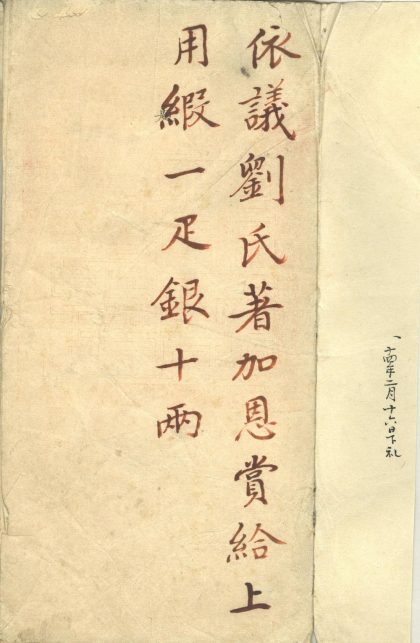 依議劉氏著加恩賞給上
用緞一疋銀十兩
十四年二月十六日下礼